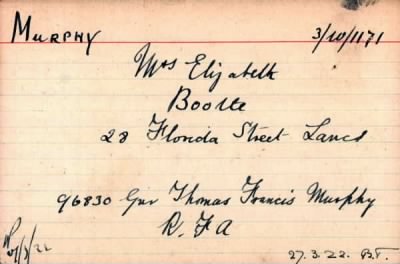 MURPHY 3/10/1171
Mrs Elizabeth
Bootle
28 Florida Street Lancs
96830 Gnr Thomas Francis Murphy
R.F.A
27.3.22. B.F.